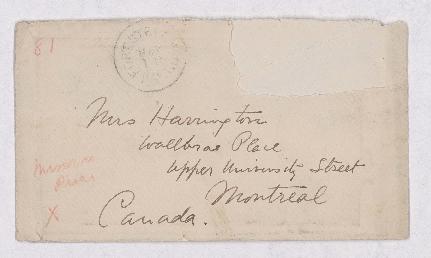 81
Mrs Harrington
Wallbrae Place
Upper University Street
Montreal
Canada.
X